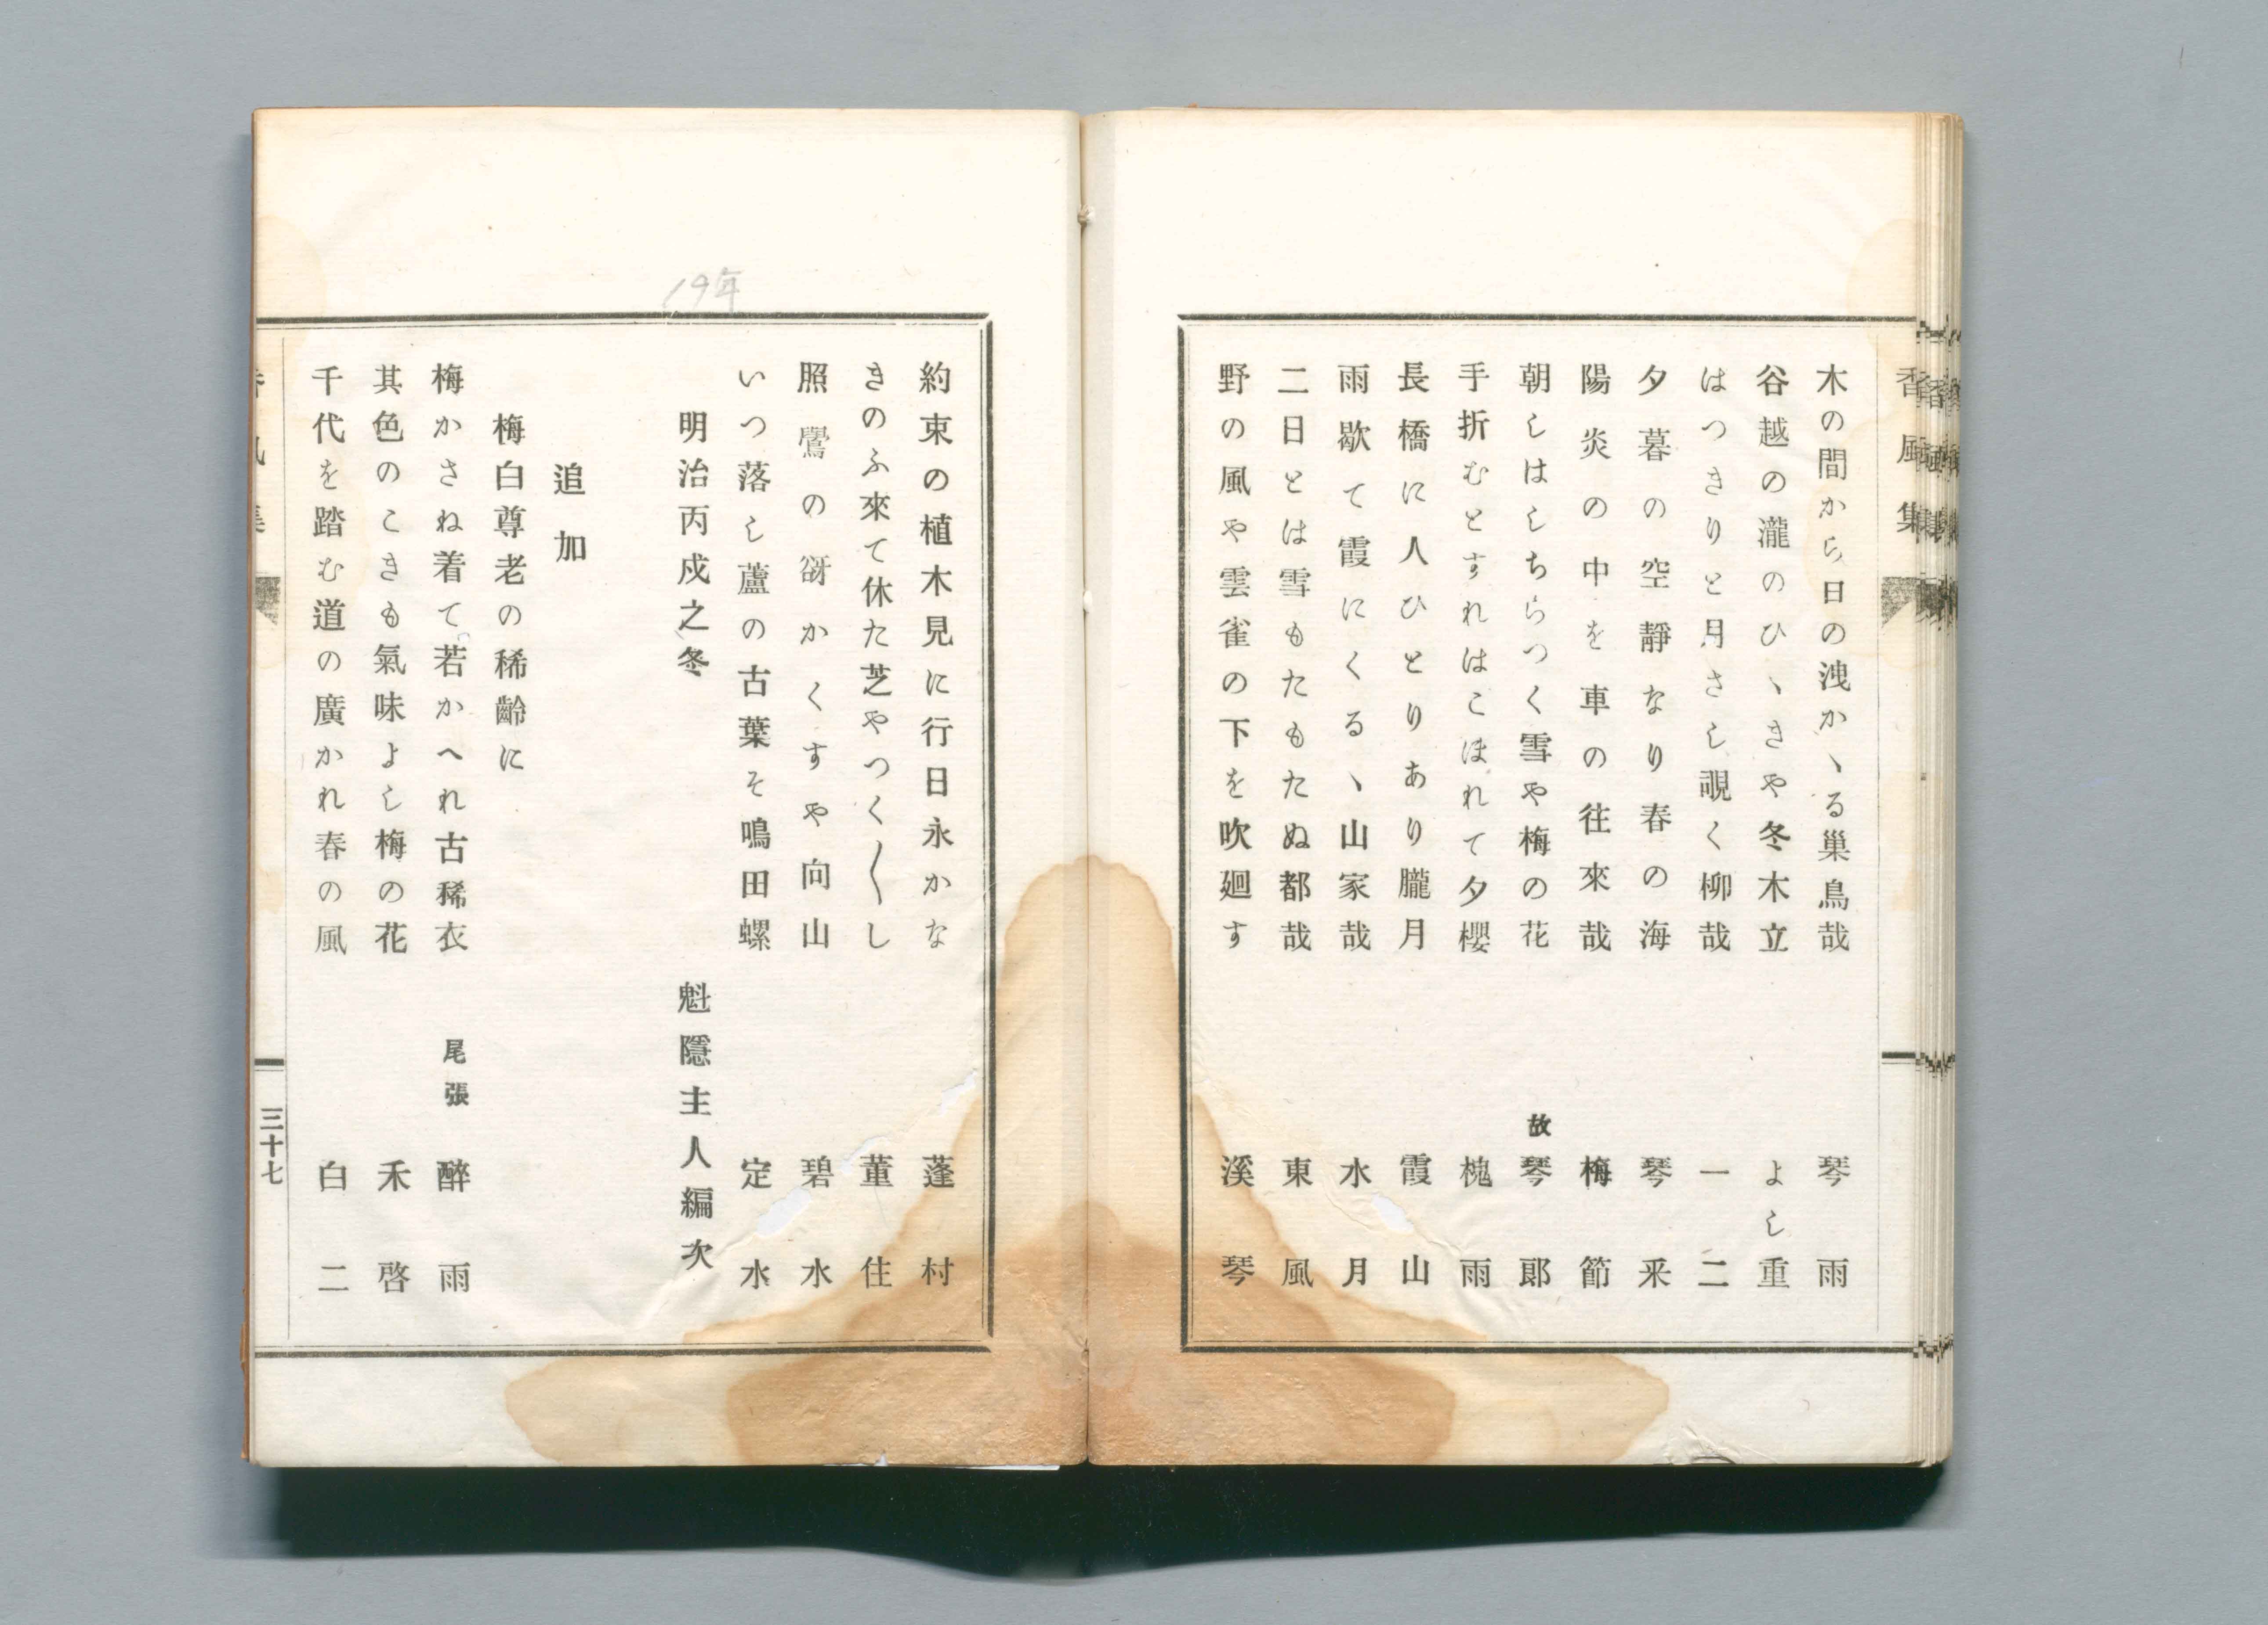 香風集
木の間から日の洩かゝる巣鳥哉 琴雨
谷越の瀧のひゝきや冬木立 よし重
はつきりと月さし覗く柳哉 一二
夕暮の空靜なり春の海 琴采
陽炎の中を車の往來哉 梅節
朝しはしちらつく雪や梅の花 故 琴郎
手折むとすれはこほれて夕櫻 槐雨
長橋に人ひとりあり朧月 霞山
雨歇て霞にくるゝ山家哉 水月
二日とは雪もたもたぬ都哉 東風
野の風や雲雀の下を吹廻す 溪琴
19年
約束の植木見に行日永かな 蓬村
きのふ來て休た芝やつく〱し 董住
照鷽の谺かくすや向山 碧水
いつ落し蘆の古葉そ鳴田螺 定水
明治丙戍之冬 魁隱主人編次
追加
梅白尊老の稀齡に
梅かさね着て若かへれ古稀衣 尾張 醉雨
其色のこきも氣味よし梅の花 禾啓
千代を踏む道の廣かれ春の風 白二
三十七